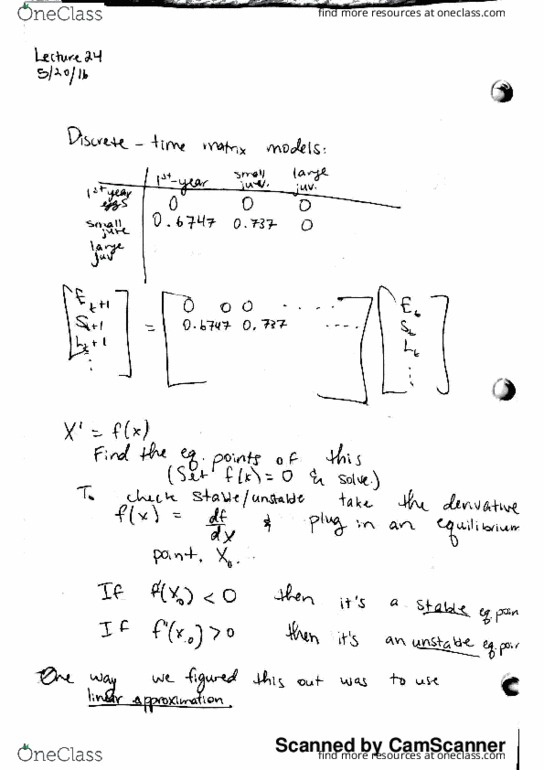 OneClass
find more resources at oneclass.com
Lecture 24
5/20/16
Discrete-time matrix models:
1st-year small juv. large juv.
1st year eggs 0 0 0
small juv 0.6747 0.737 0
large juv
Et+1 0 0 0 .... Et
St+1 = 0.6747 0.737 .... St
Lt+1 Lt
⋮ ⋮
X' = f(x)
Find the eq. points of this
(Set f(x) = 0 & solve.)
To check stable/unstable take the derivative
f(x) = df/dx & plug in an equilibrium
point, X₀.
If f'(X₀) < 0 then it's a stable eq poin
If f'(x₀) > 0 then it's an unstable eq. poin
One way we figured this out was to use
linear approximation.
Scanned by CamScanner
OneClass
find more resources at oneclass.com